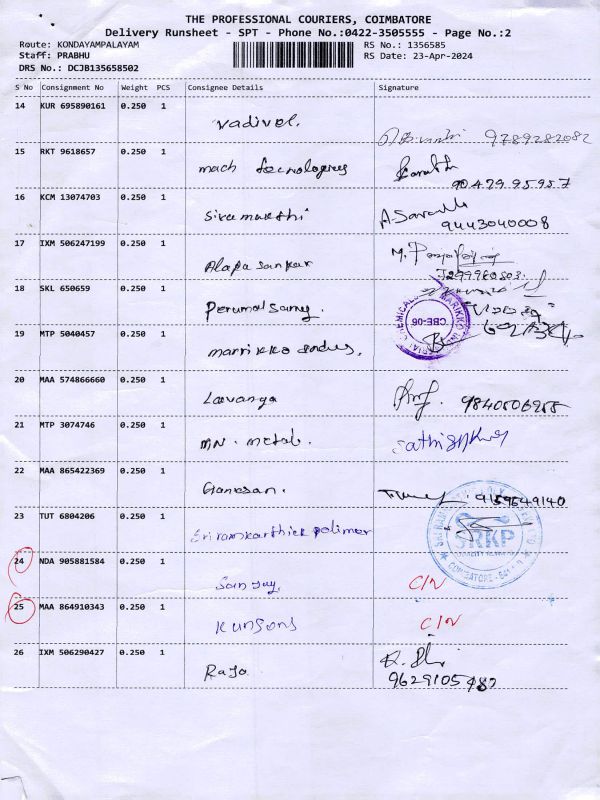 THE PROFESSIONAL COURIERS, COIMBATORE
Delivery Runsheet - SPT - Phone No.:0422-3505555 - Page No.:2
Route: KONDAYAMPALAYAM
Staff: PRABHU
DRS No.: DCJB135658502
RS No.: 1356585
RS Date: 23-Apr-2024
S No Consignment No Weight PCS Consignee Details Signature
14 KUR 695890161 0.250 1 Vadivel.
9789282082
15 RKT 9618657 0.250 1 mach Tecnologies
90479 95957
16 KCM 13074703 0.250 1 Siva
9443040008
17 IXM 506247199 0.250 1 Alapa sankar
M.
18 SKL 650659 0.250 1 Perumal Samy.
19 MTP 5040457 0.250 1 marrikko
MARIKKO
CHEMICALS
CBE-06
20 MAA 574866660 0.250 1 Lavanya
21 MTP 3074746 0.250 1 MN. metal.
22 MAA 865422369 0.250 1 Ganesan.
9159649140
23 TUT 6804206 0.250 1 Sri ramkarthick polimer
SRKP
COIMBATORE
24 NDA 905881584 0.250 1 Sanjay, C/N
25 MAA 864910343 0.250 1 Kunsons C/N
26 IXM 506290427 0.250 1 Raja
9629105482